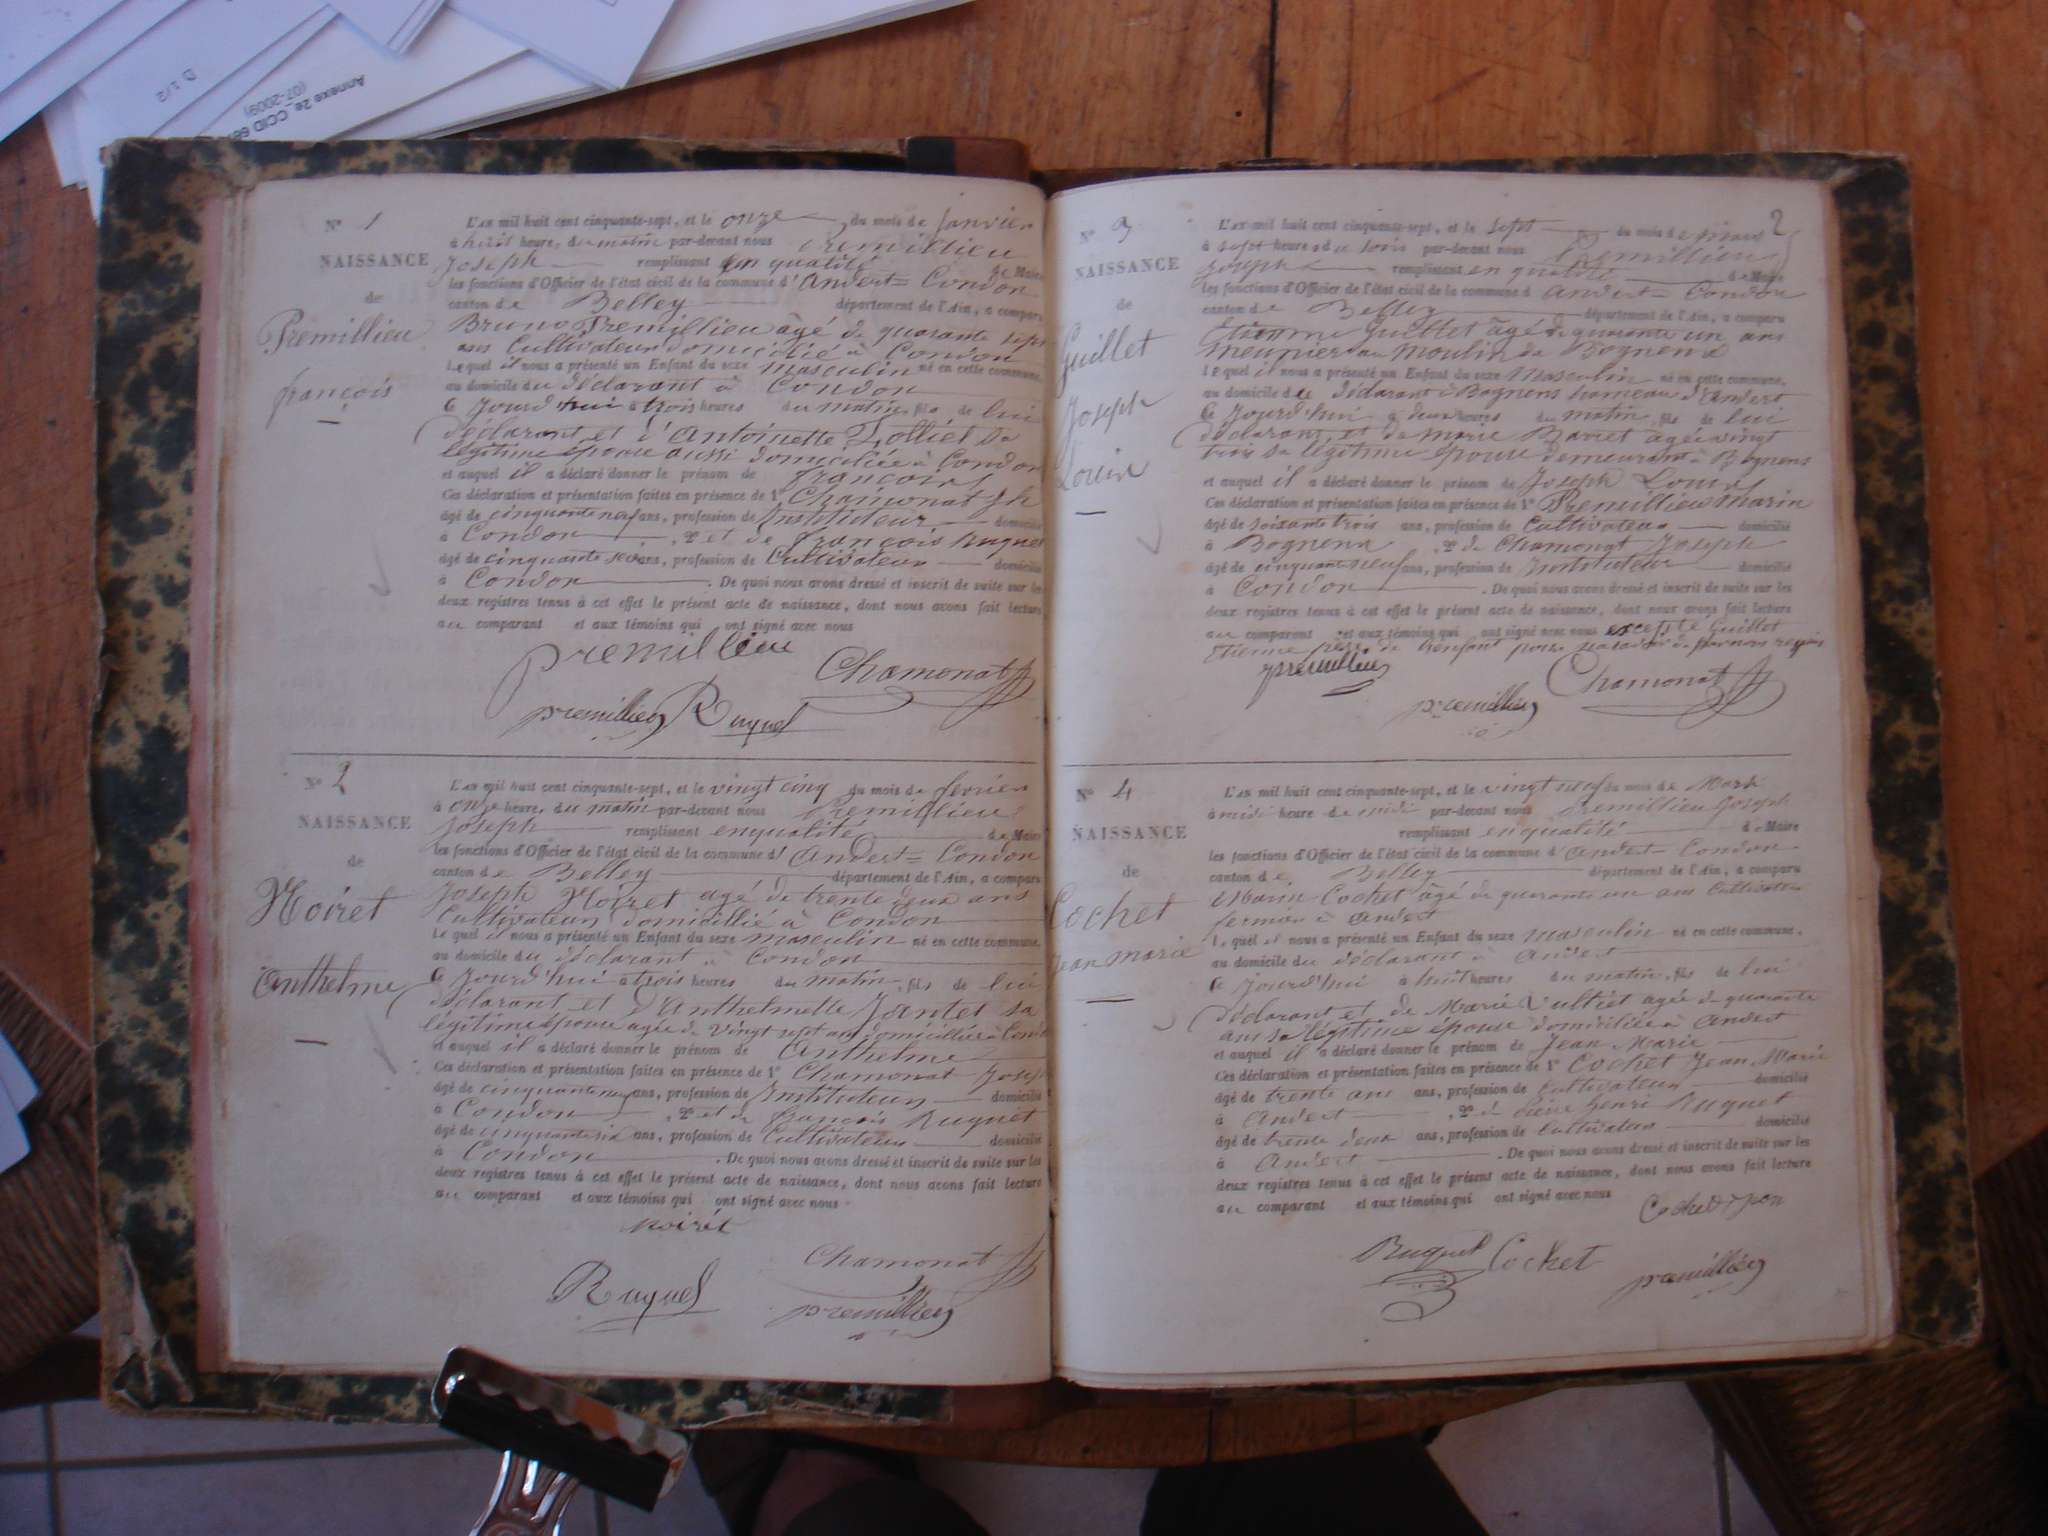 D 1/2
Annexe 2e - CCID
(07-2009)
N° 1
NAISSANCE
de
Premillieu
françois
L'an mil huit cent cinquante-sept, et le onze du mois de Janvier
à huit heure, du matin par-devant nous Premillieu
Joseph remplissant en qualité de Maire
les fonctions d'Officier de l'état civil de la commune d'Andert=Condon
canton de Belley département de l'Ain, a comparu
Bruno Premillieu âgé de quarante sept
ans Cultivateur domicilié à Condon
Lequel il nous a présenté un Enfant du sexe masculin né en cette commune,
au domicile du déclarant à Condon
Ce Jourd'hui à trois heures du matin, fils de lui
déclarant et d'Antoinette sa
légitime épouse aussi domiciliée à Condon
et auquel il a déclaré donner le prénom de françois
Ces déclaration et présentation faites en présence de 1° Chamonat Jh
âgé de cinquante neuf ans, profession de Instituteur domicilié
à Condon , 2° et de françois Ruquet
âgé de cinquante ans, profession de Cultivateur domicilié
à Condon . De quoi nous avons dressé et inscrit de suite sur les
deux registres tenus à cet effet le présent acte de naissance, dont nous avons fait lecture
au comparant et aux témoins qui ont signé avec nous
premillieu
Chamonat
premillieu Ruquet
N° 2
NAISSANCE
de
Noiret
Anthelme
L'an mil huit cent cinquante-sept, et le vingt cinq du mois de février
à onze heure, du matin par-devant nous Premillieu
Joseph remplissant en qualité de Maire
les fonctions d'Officier de l'état civil de la commune d'Andert=Condon
canton de Belley département de l'Ain, a comparu
Joseph Noiret agé de trente deux ans
Cultivateur domicillié à Condon
Lequel il nous a présenté un Enfant du sexe masculin né en cette commune,
au domicile du déclarant à Condon
Ce Jourd'hui à trois heures du matin, fils de lui
déclarant et d'Anthelmette Jantet sa
légitime épouse agée de vingt sept ans domicilliée à Cond
et auquel il a déclaré donner le prénom de Anthelme
Ces déclaration et présentation faites en présence de 1° Chamonat Josep
âgé de cinquante neuf ans, profession de Instituteur domicilié
à Condon , 2° et de françois Ruquet
âgé de cinquante six ans, profession de Cultivateur domicilié
à Condon . De quoi nous avons dressé et inscrit de suite sur les
deux registres tenus à cet effet le présent acte de naissance, dont nous avons fait lecture
au comparant et aux témoins qui ont signé avec nous
Noirét
Chamonat
Ruquet
premillieu
2
N° 3
NAISSANCE
de
Guillet
Joseph
Louis
L'an mil huit cent cinquante-sept, et le sept du mois de mars
à sept heures du soir par-devant nous Premillieu
Joseph remplissant en qualité de Maire
les fonctions d'Officier de l'état civil de la commune d Andert=Condon
canton de Belley département de l'Ain, a comparu
Etienne Guillet âgé de quarante un ans
meunier au moulin de Bognens
Lequel il nous a présenté un Enfant du sexe Masculin né en cette commune,
au domicile de déclarant à Bognens hameau d'Andert
Ce Jourd'hui à deux heures du matin, fils de lui
déclarant, et de marie agée vingt
trois sa légitime épouse demeurant à Bognens
et auquel il a déclaré donner le prénom de Joseph Louis
Ces déclaration et présentation faites en présence de 1° Premillieu Marin
âgé de soixante trois ans, profession de Cultivateur domicilié
à Bognens , 2° de Chamonat Joseph
âgé de cinquante neuf ans, profession de Instituteur domicilié
à Condon . De quoi nous avons dressé et inscrit de suite sur les
deux registres tenus à cet effet le présent acte de naissance, dont nous avons fait lecture
au comparant et aux témoins qui ont signé avec nous excepté Guillet
Etienne père de l'enfant pour ne savoir de par nous requis
premillieu
Chamonat
premillieu
N° 4
NAISSANCE
de
Cochet
Jean Marie
L'an mil huit cent cinquante-sept, et le vingt neuf du mois de Mars
à midi heure de midi par-devant nous Premillieu Joseph
remplissant en qualité de Maire
les fonctions d'Officier de l'état civil de la commune d'Andert=Condon
canton de Belley département de l'Ain, a comparu
Marin Cochet âgé de quarante un ans Cultivateur
fermier à Andert
Lequel il nous a présenté un Enfant du sexe masculin né en cette commune,
au domicile du déclarant à Andert
Ce Jourd'hui à huit heures du matin, fils de lui
déclarant et de Marie Vulliet agée de quarante
ans sa légitime épouse domiciliée à Andert
et auquel il a déclaré donner le prénom de Jean Marie
Ces déclaration et présentation faites en présence de 1° Cochet Jean Marie
âgé de trente ans ans, profession de Cultivateur domicilié
à Andert , 2° d Pierre henri Ruquet
âgé de trente deux ans, profession de Cultivateur domicilié
à Andert . De quoi nous avons dressé et inscrit de suite sur les
deux registres tenus à cet effet le présent acte de naissance, dont nous avons fait lecture
au comparant et aux témoins qui ont signé avec nous
Ruquet Cochet
premillieu